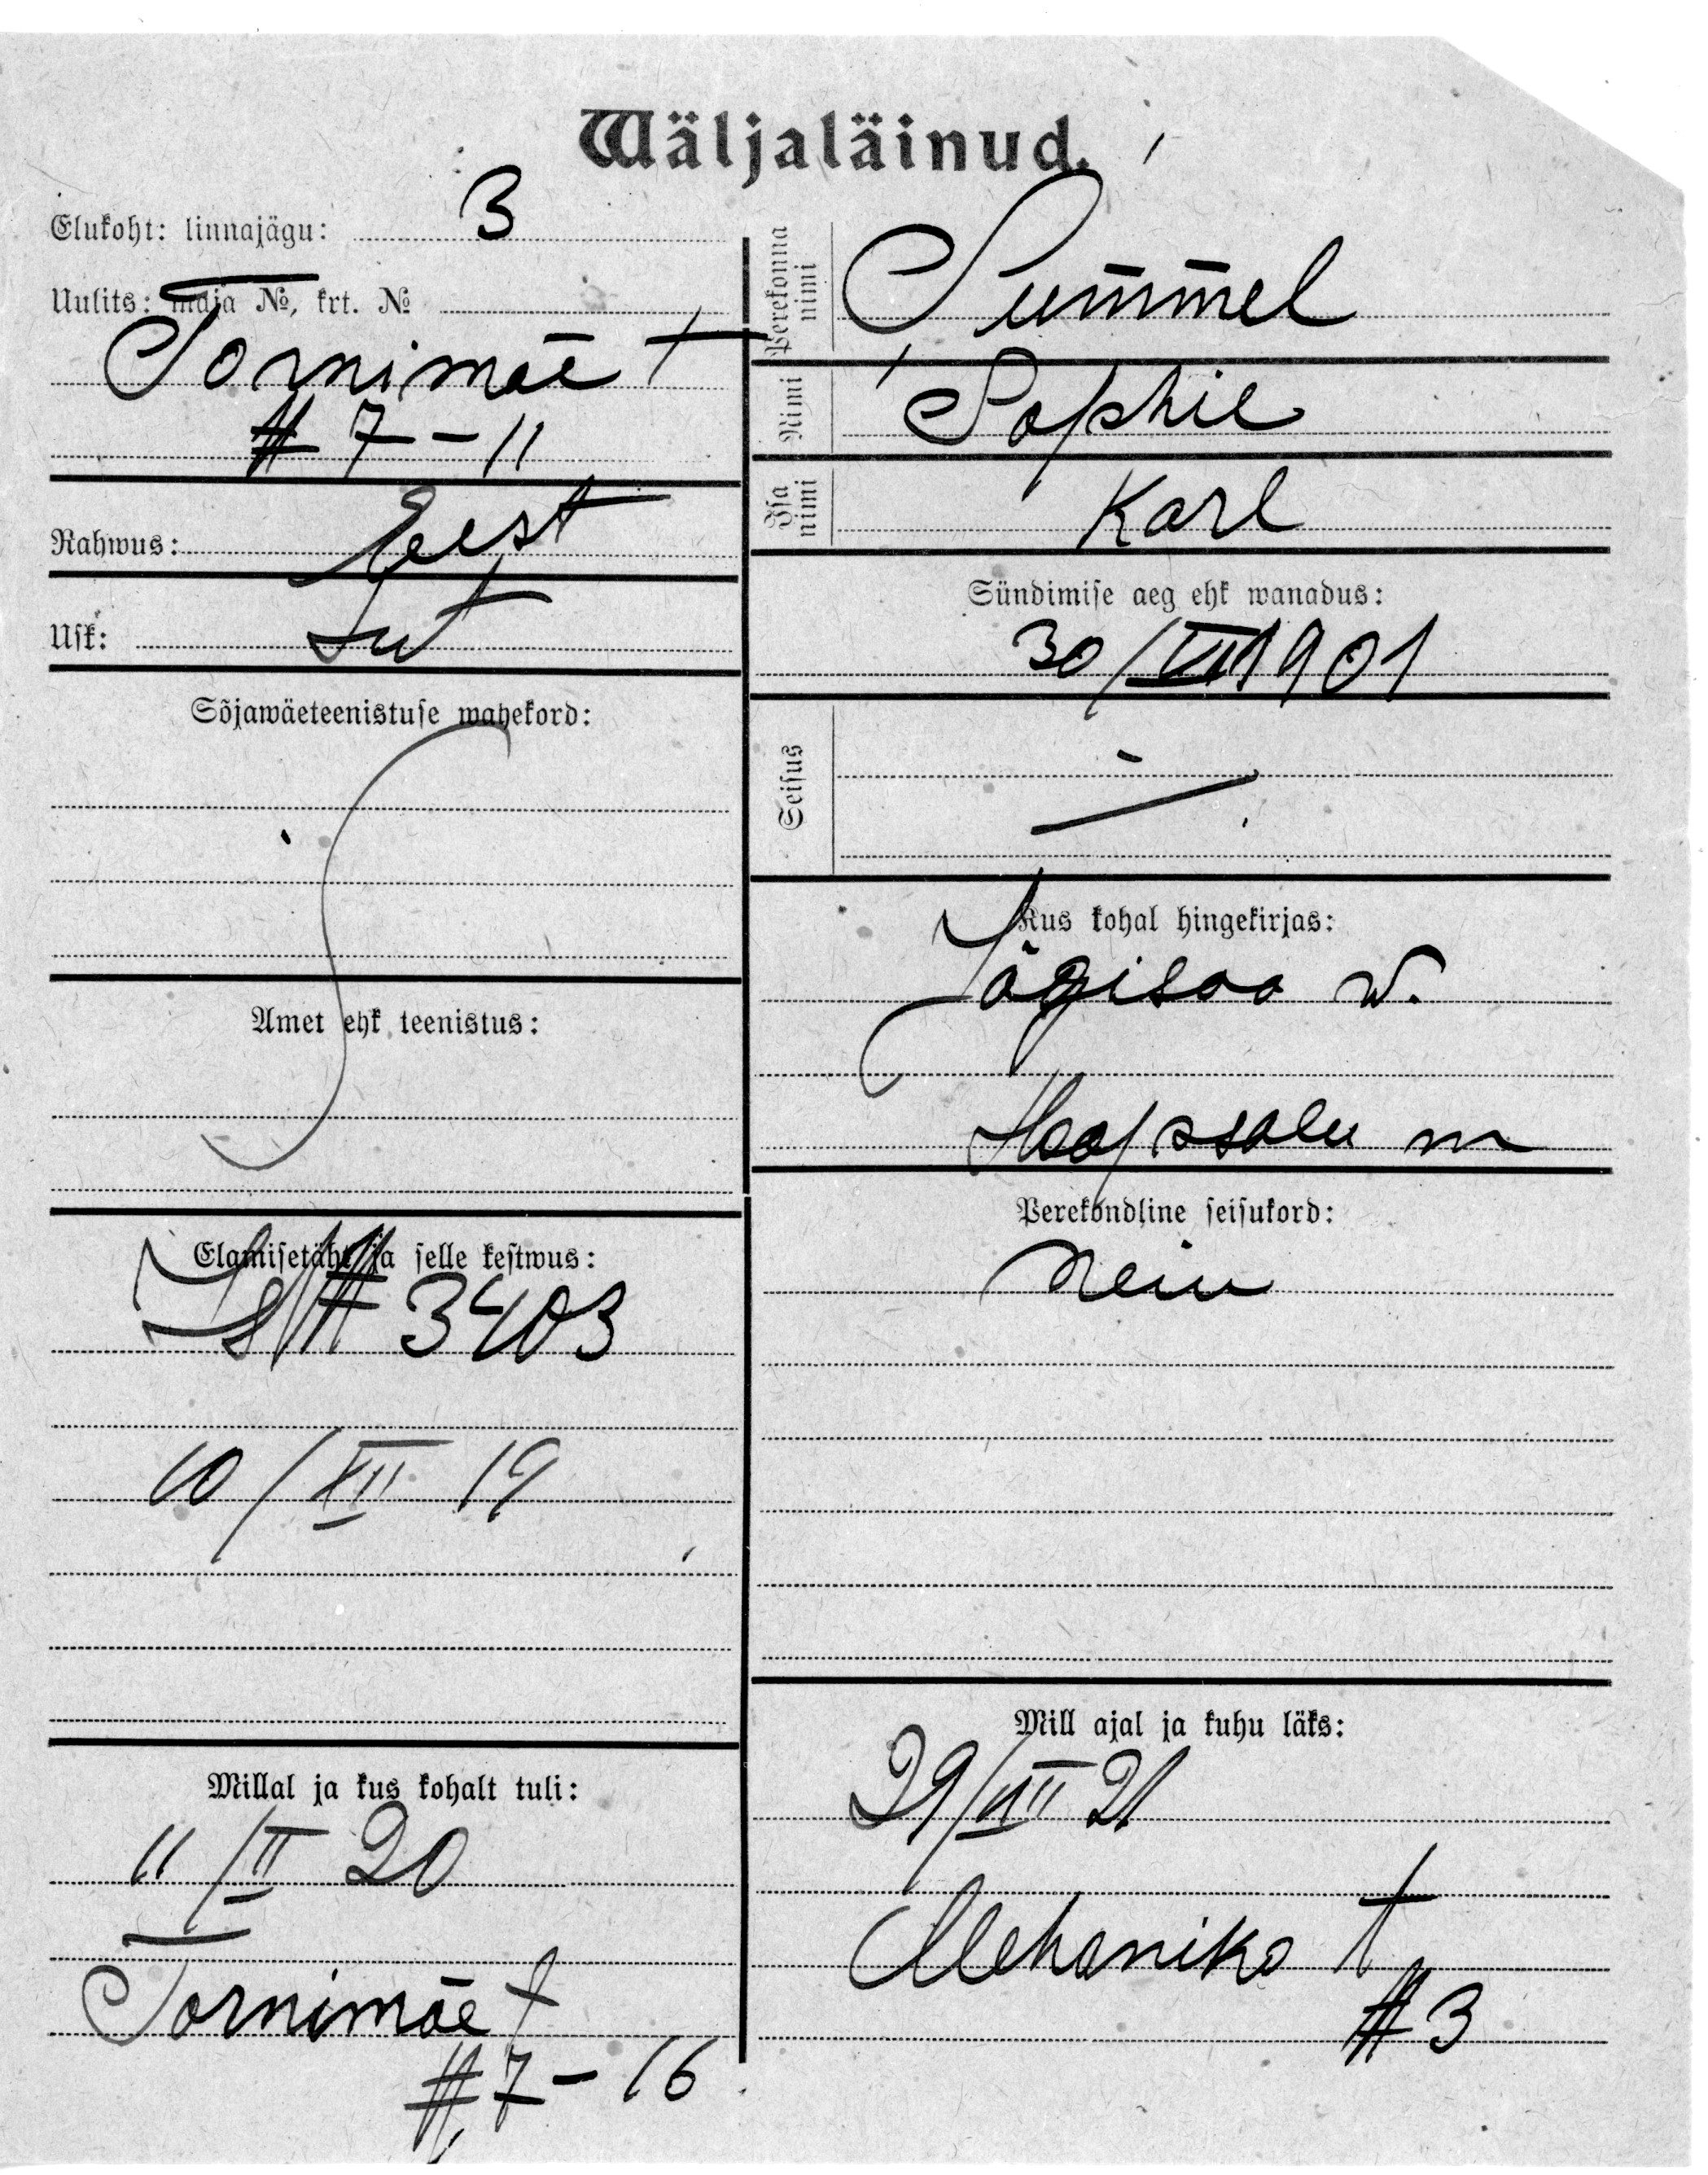 Wäljaläinud.
Elukoht: linnajägu: 3
Uulits: maja №, krt. №
Tornimäe t
# 7-11
Rahwus: Eest
Usk: Lut
Sõjawäeteenistuse wahekord:
Amet ehk teenistus:
Elamisetäht ja selle kestwus:
# 3403
10/XII 19
Millal ja kus kohalt tuli:
11/II 20
Tornimäe t
# 7-16
Perekonna nimi Summel
Nimi Sophie
Isa nimi Karl
Sündimise aeg ehk wanadus:
30/VII 1901
Seisus —
Kus kohal hingekirjas:
Jõgisoo w.
Haapsalu m
Perekondline seisukord:
Neiu
Mill ajal ja kuhu läks:
29/VII 21
Mehaniko t
# 3